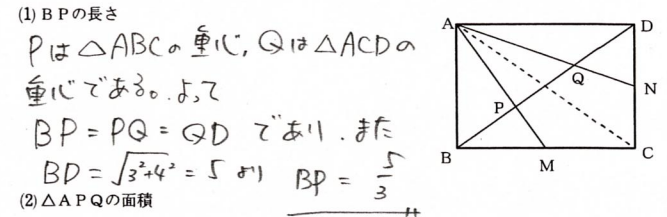 (1) BPの長さ
Pは△ABCの重心, Qは△ACDの
重心である。よって
BP = PQ = QD であり、また
BD = √3²+4² = 5 より BP = 5/3
(2) △APQの面積
A
D
Q
N
P
B
M
C